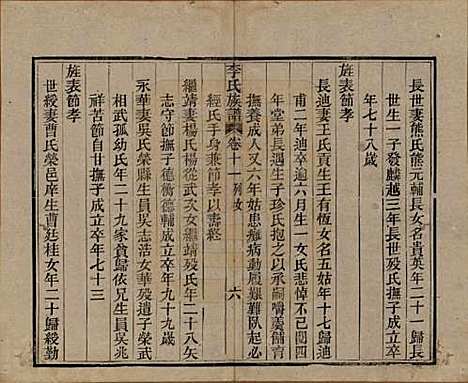 長世妻熊氏熊元輔長女名貴英年二十一歸長
世生一子發麟越三年長世歿氏撫子成立卒
年七十八歲
旌表節孝
長迪妻王氏貢生王有恆女名五姑年十七歸迪
甫二年迪卒遺六月生一女氏悲悼不已閱四
年堂弟長遇生子珍氏抱之以承嗣嚼羹餔育
撫養成人又六年姑患癱病動履艱難臥起必
經氏手身兼節孝以壽終
李氏族譜 卷十一 列女 六
繼靖妻楊氏楊從武次女繼靖歿氏年二十八矢
志守節撫子德衡德輔成立卒年九十九歲
永華妻吳氏榮縣生員吳志浩女華卒遺子榮武
相武孤幼氏年二十九家貧歸依兄生員吳兆
祥苦節自甘撫子成立卒年七十三
旌表節孝
世綬妻曹氏榮邑庠生曹廷桂女年二十歸綬勤